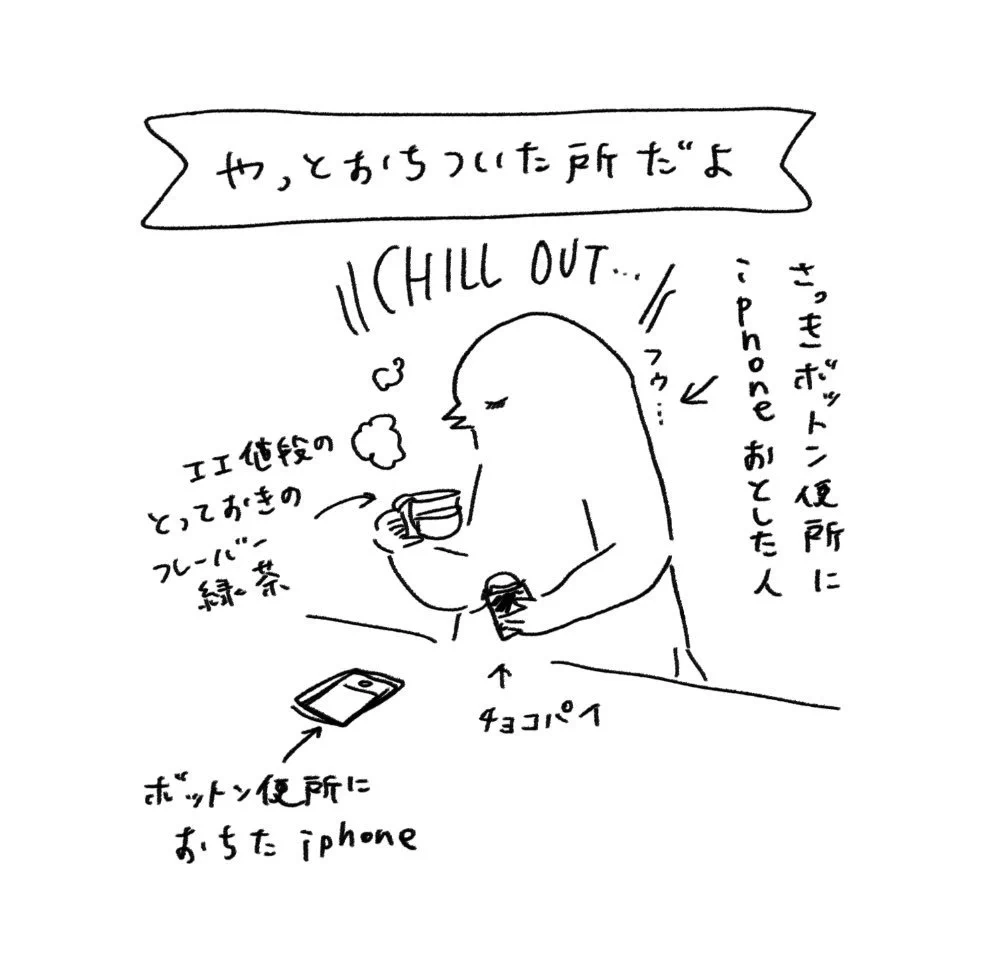 やっとおちついた所だよ
CHILL OUT...
さっきボットン便所に
iphoneおとした人
フゥ...
エエ値段の
とっておきの
フレーバー
緑茶
チョコパイ
ボットン便所に
おちたiphone